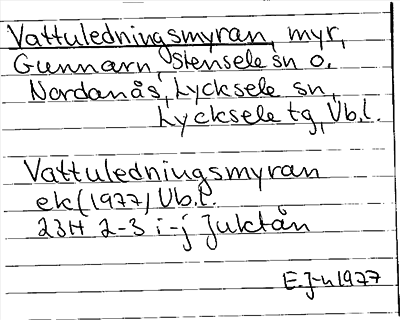 Vattuledningsmyran, myr,
Gunnarn, Stensele sn o.
Nordanås, Lycksele sn,
Lycksele tg, Vb.l.
Vattuledningsmyran
ek (1977) Vb.l.
23H 2-3 i-j Juktån
E.J-n 1977